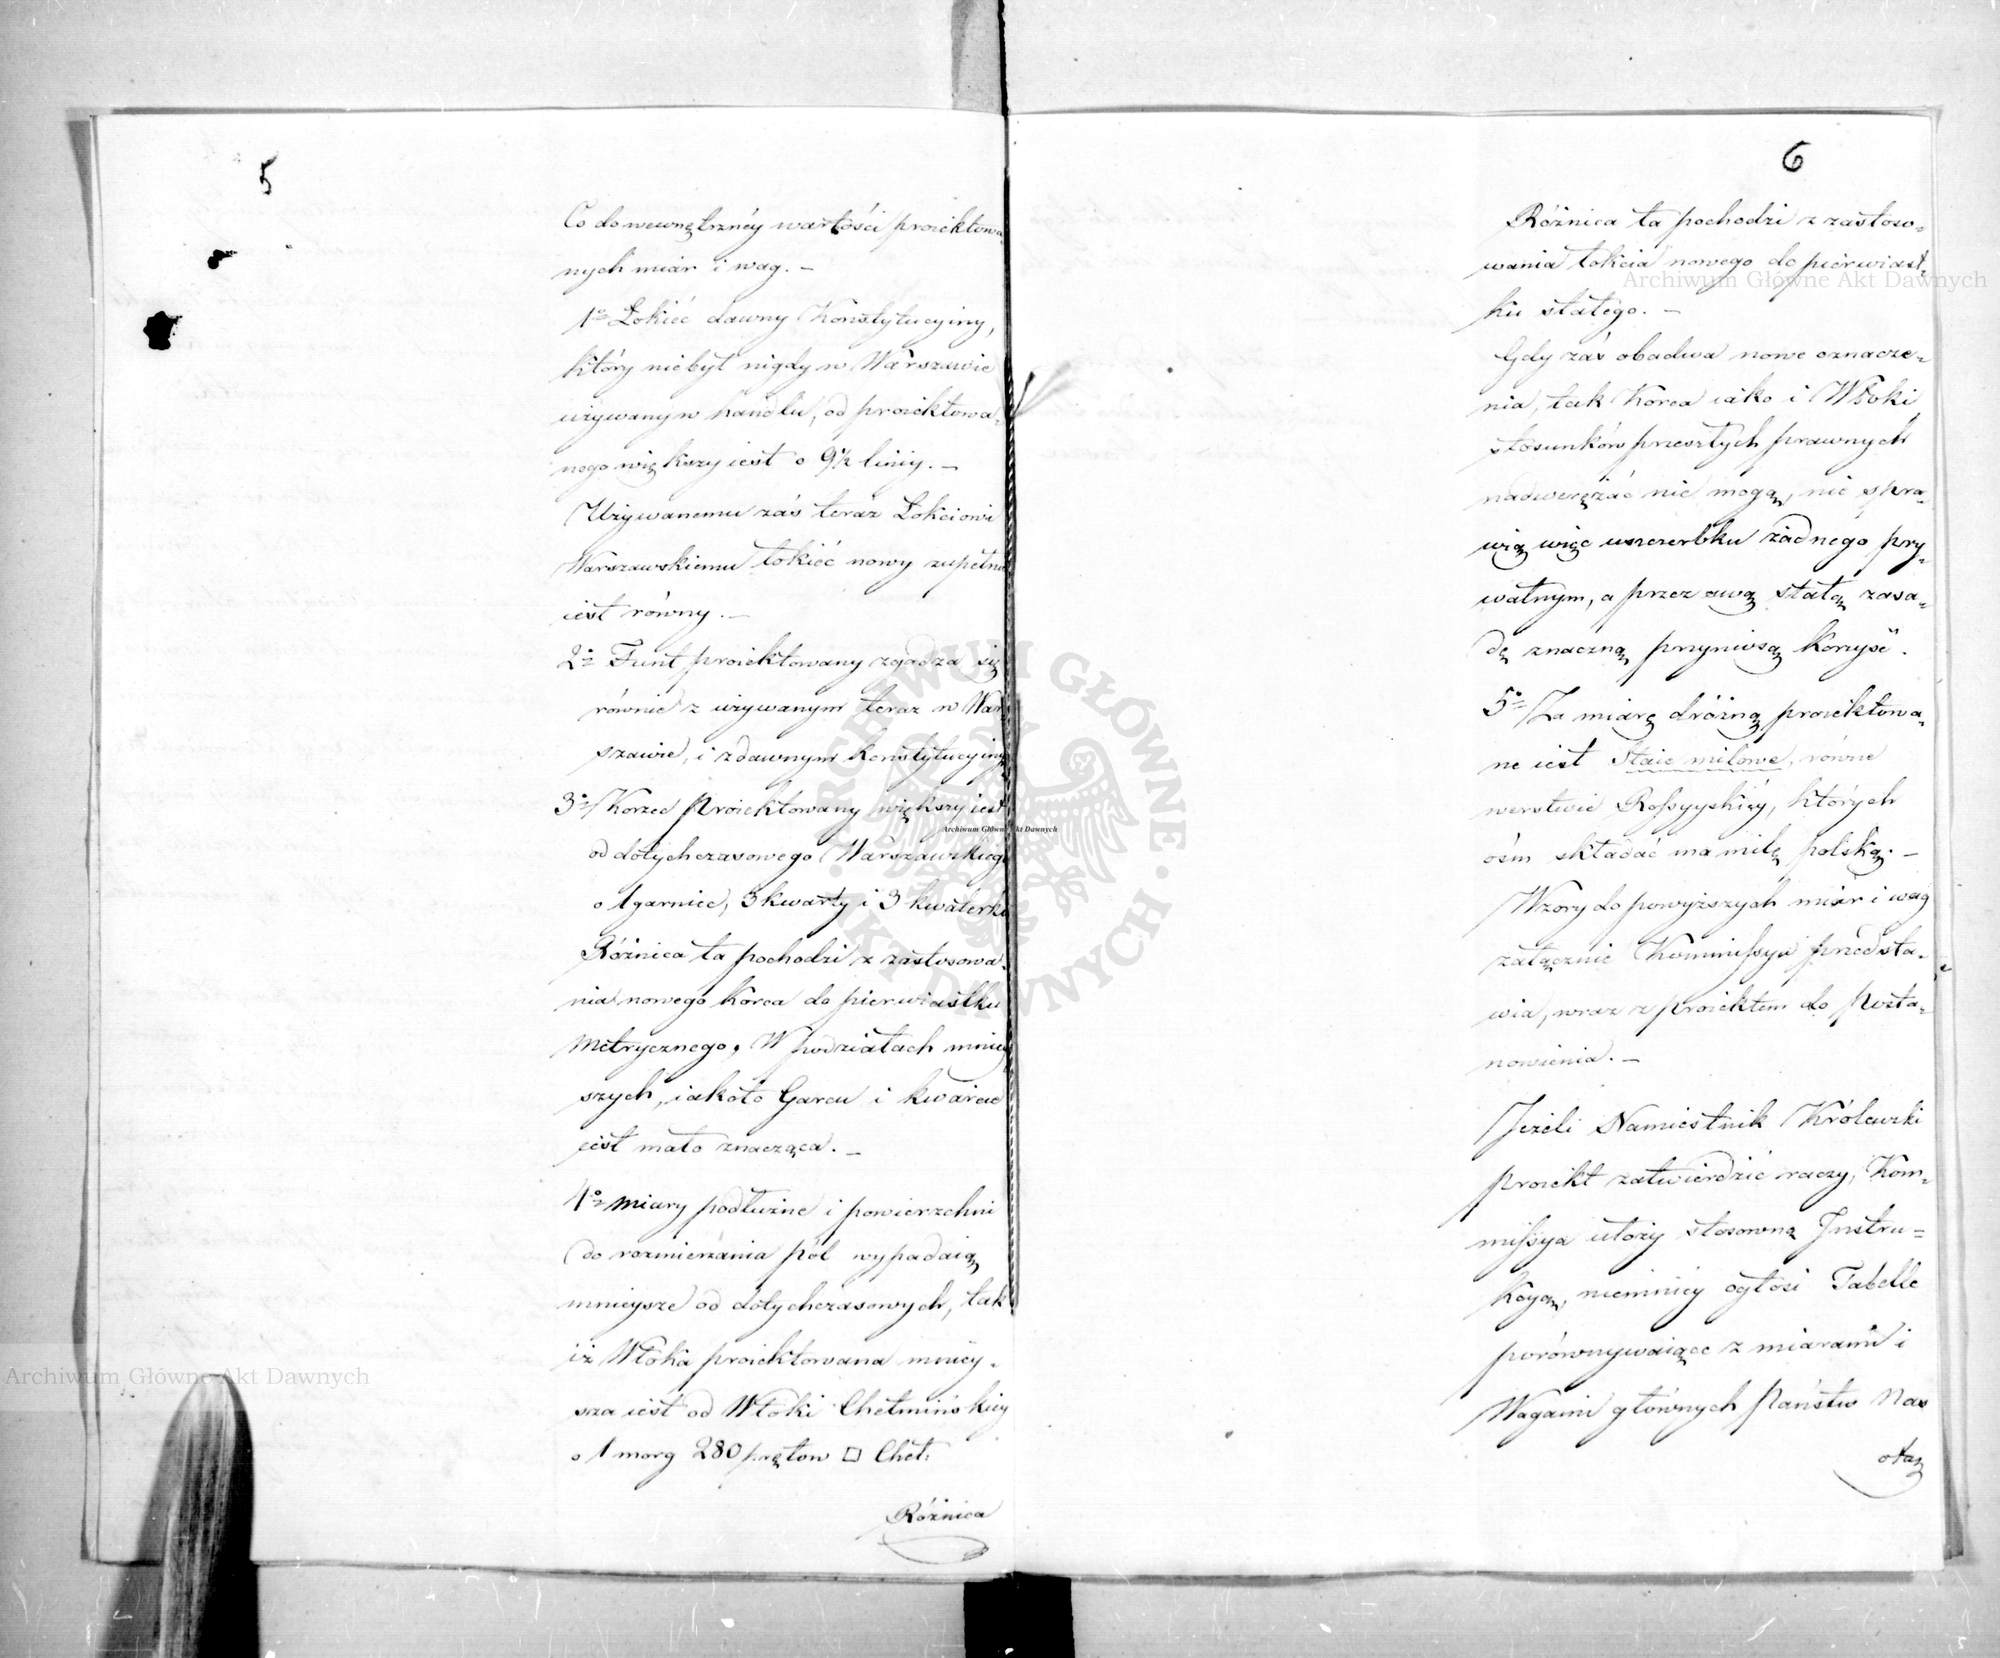 5
Co do wewnętrznéy wartości proiektowa-
nych miar i wag. —
1º Łokieć dawny Konstytucyiny,
który niebył nigdy w Warszawie
używany w handlu, od proiektowa-
nego większy iest o 9½ liniy. —
Używanemu zaś teraz Łokciowi
Warszawskiemu łokieć nowy zupełnie
iest równy. —
2º Funt proiektowany zgadza się
równie z używanym teraz w War-
szawie, i z dawnym konstytucyinym
3º Korzec Proiektowany większy iest
od dotychczasowego Warszawskiego
o 1 garniec, 3 kwarty i 3 kwaterki
Różnica ta pochodzi z zastosowa-
nia nowego Korca do pierwiastku
Metrycznego. W podziałach mniey-
szych, iakoto Garcu i kwarcie
iest mało znacząca. —
4º Miary podłużne i powierzchni
do rozmierzania pól wypadaią
mnieysze od dotychczasowych, tak
iż Włóka proiektowana mniey-
sza iest od Włóki Chełmińskiey
o 1 morg 280 prętow □ Cheł:
Różnica
6
Różnica ta pochodzi z zastoso-
wania łokcia nowego do pierwiast-
ku stałego. —
Gdy zaś obadwa nowe oznacze-
nia, tak Korca iako i Włóki
stosunków przeszłych prawnych
nadwerężać nie mogą, nie spra-
wią więc uszczerbku żadnego pry-
watnym, a przez swą stałą zasa-
dę znaczną przyniosą korzyść.
5º Za miarę dróżną proiektowa-
ne iest Staie milowe, równe
werstwie Rossyyskiéy, których
ośm składać ma milę polską. —
Wzory do powyższych miar i wag
załącznie Kommissya przedsta-
wia, wraz z proiektem do Posta-
nowienia. —
Jeżeli Namiestnik Królewski
proiekt zatwierdzić raczy, Kom-
missya ułoży stosowną Instru-
kcyą, niemniey ogłosi Tabelle
porównywaiące z miarami i
Wagami głównych Państw Nas
otaz
Archiwum Główne Akt Dawnych
Archiwum Główne Akt Dawnych
Archiwum Główne Akt Dawnych
ARCHIWUM GŁÓWNE · AKT DAWNYCH ·